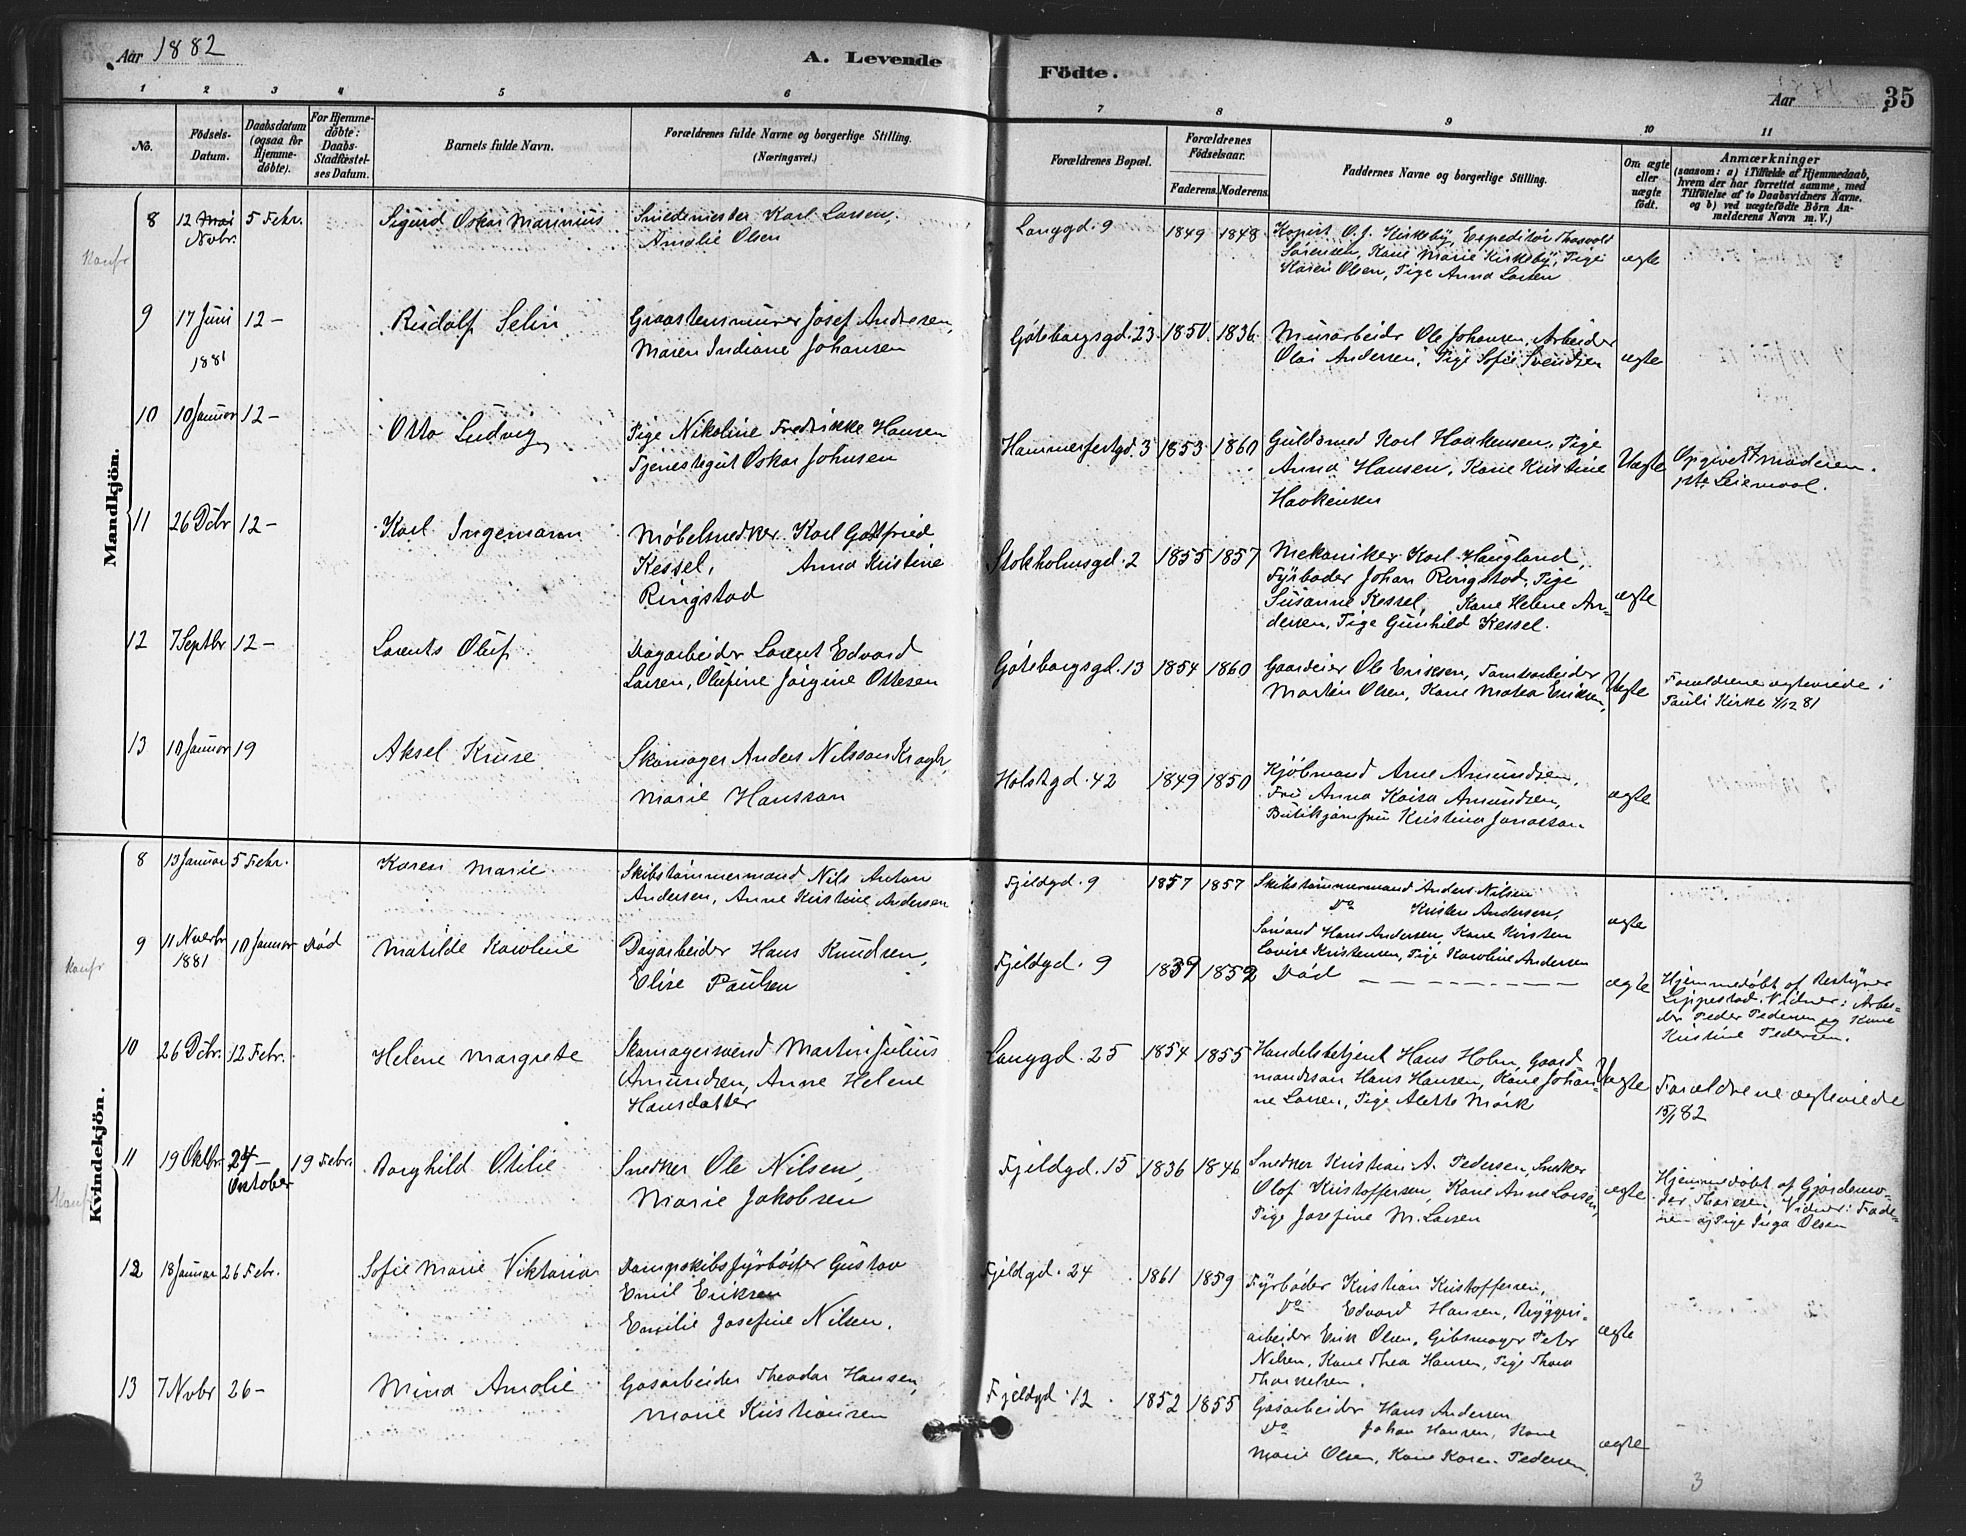 Aar 1882
A. Levende Födte.
Aar
35
1 2 3 4 5 6 7 8 9 10 11
No.
Födsels-Datum.
Daabsdatum (ogsaa for Hjemme-döbte).
For Hjemme-döbte: Daabs-Stadfæstel-ses Datum.
Barnets fulde Navn.
Forældrenes fulde Navne og borgerlige Stilling.
(Næringsvei.)
Forældrenes Bopæl.
Forældrenes Födselsaar.
Faderens. Moderens.
Faddernes Navne og borgerlige Stilling.
Om ægte eller uægte födt.
Anmærkninger
(saasom: a) i Tilfælde af Hjemmedaab, hvem der har forrettet samme, med Tilföielse af to Daabsvidners Navne, og b) ved uægtefödte Börn An-melderens Navn m. V.)
Mandkjön.
Konfr
8 12 Mai Novbr. 5 Febr. Sigurd Oskar Marinius
Smedmester Karl Larsen,
Amalie Olsen
Langgd. 9 1849 1848
Kopist O. J. Kirkeby, Expeditör Thorvald
Sörensen, Kone Marie Kirkeby, Pige
Karen Olsen, Pige Anna Larsen
ægte
9 17 Juni 1881 12 – Rudolf Selin
Graastensmurer Josef Andresen,
Maren Indiane Johansen
Göteborgsgd. 23 1850 1836
Murarbeider Ole Johansen, Arbeider
Olai Andersen, Pige Sofie Svendsen
ægte
10 10 Januar 12 – Otto Ludvig
Pige Nikoline Fredrikke Hansen
Tjenestegut Oskar Johnsen
Hammerfestgd. 3 1853 1860
Guldsmed Karl Haakensen, Pige
Anna Hansen, Kone Kristine
Haakensen
Uægte
Opgivet Moderen.
1ste Leiermaal.
11 26 Dcbr 12 – Karl Ingemann
Möbelsnedker Karl Gotfried
Kessel, Anna Kristine
Ringstad
Stokholmsgd. 2 1855 1857
Mekaniker Karl Haugland,
Fyrböder Johan Ringstad, Pige
Susanne Kessel, Kone Helene An-
dersen, Pige Gunhild Kessel.
ægte
12 7 Septbr 12 – Lorents Oluf
Dagarbeider Lorent Edvard
Larsen, Olufine Jörgine Ottesen
Göteborgsgd. 13 1854 1860
Gaardeier Ole Eriksen, Tomtearbeider
Martin Olsen, Kone Matea Eriksen,
Uægte
Forældrene ægteviede i
Pauli Kirke 4/12 81
13 10 Januar 19 Aksel Kruse
Skomager Anders Nilsson Kragh,
Marie Hansson
Holstgd. 42 1849 1850
Kjöbmand Arne Amundsen,
Fru Anna Kaisa Amundsen,
Butikjomfru Kristina Jonasson
ægte
Kvindekjön.
8 13 Januar 5 Febr. Karen Marie
Skibstömmermand Nils Anton
Andersen, Anne Kristine Andersen
Fjeldgd. 9 1857 1857
Skibstömmermand Anders Nilsen
Do Kristen Andersen,
Sömand Hans Andersen, Kone Kirsten
Lovise Kristensen, Pige Karoline Andersen
ægte
Konfr
9 11 Novbr 1881 10 Januar Död Matilde Karoline
Dagarbeider Hans Knudsen,
Elise Paulsen
Fjeldgd. 9 1839 1852 Död
ægte
Hjemmedöbt af Bestyrer
Lippestad. Vidner: Arbei-
der Peder Pedersen og Kone
Kristine Pedersen.
10 26 Dcbr. 12 Febr. Helene Margrete
Skomagersvend Martin Julius
Amundsen, Anne Helene
Hansdatter
Langgd. 25 1854 1855
Handelsbetjent Hans Holm, Gaard
mandssön Hans Hansen, Kone Johan-
ne Larsen, Pige Alette Mörk
Uægte
Forældrene ægteviede
15/1 82
Konfr
11 19 Oktbr. 24 – Oktober 19 Febr. Borghild Otilie
Snedker Ole Nilsen,
Marie Jakobsen
Fjeldgd. 15 1836 1846
Snedker Kristian A. Pedersen, Snedker
Olof Kristoffersen, Kone Anne Larsen,
Pige Josefine M. Larsen
ægte
Hjemmedöbt af Gjordemo-
der Thoresen, Vidner: Fade-
ren og Pige Inga Olsen
12 18 Januar 26 Febr. Sofie Marie Viktoria
Dampskibsfyrböter Gustav
Emil Eriksen
Emilie Josefine Nilsen.
Fjeldgd. 24 1861 1859
Fyrböder Kristian Kristoffersen,
Do Edvard Hansen, Bryggeri-
arbeider Erik Olsen, Gibsmager Peter
Nilsen, Kone Thea Hansen, Pige Thora
Thorkelsen.
ægte
13 7 Novbr 26 – Mina Amalie
Gasarbeider Theodor Hansen,
Marie Kristiansen
Fjeldgd. 12. 1852 1855
Gasarbeider Hans Andersen
Do Johan Hansen, Kone
Marie Olsen, Kone Karen Pedersen.
ægte
3